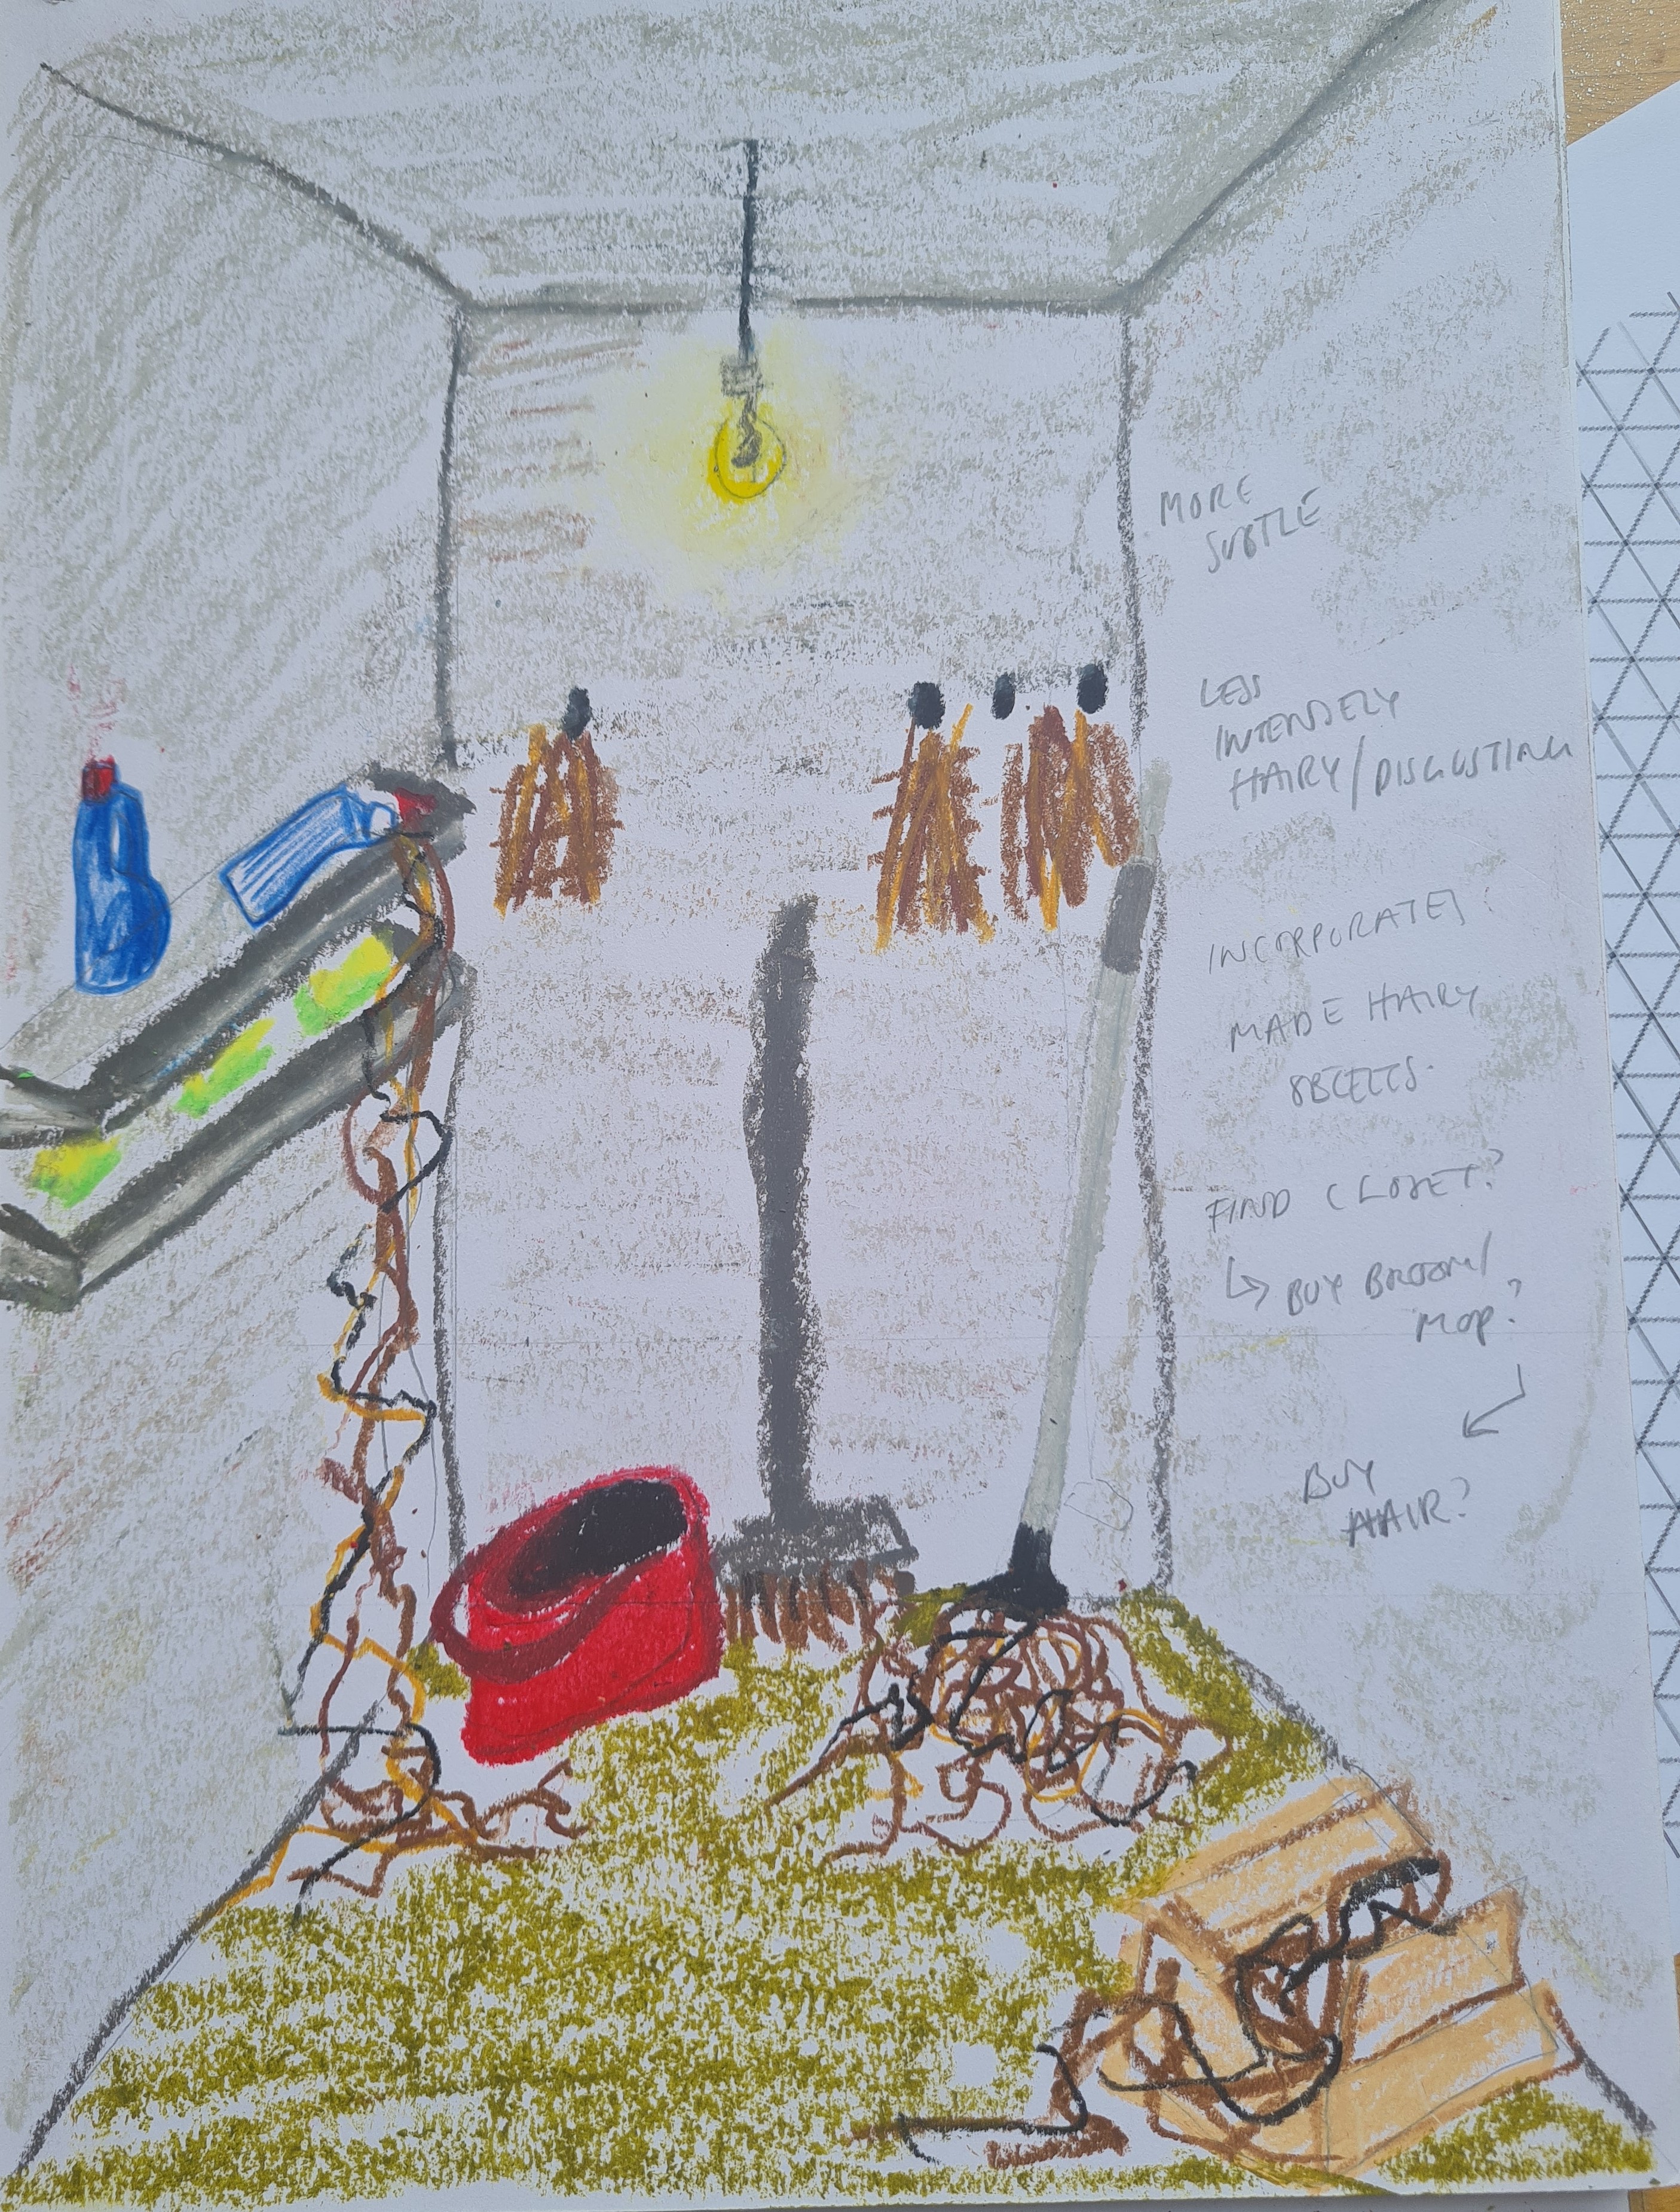 MORE
SUBTLE
LESS
INTENSELY
HAIRY/DISGUSTING
INCORPORATES:
MADE HAIRY
OBJECTS.
FIND CLOSET?
↳ BUY BROOM/
MOP?
BUY
HAIR?